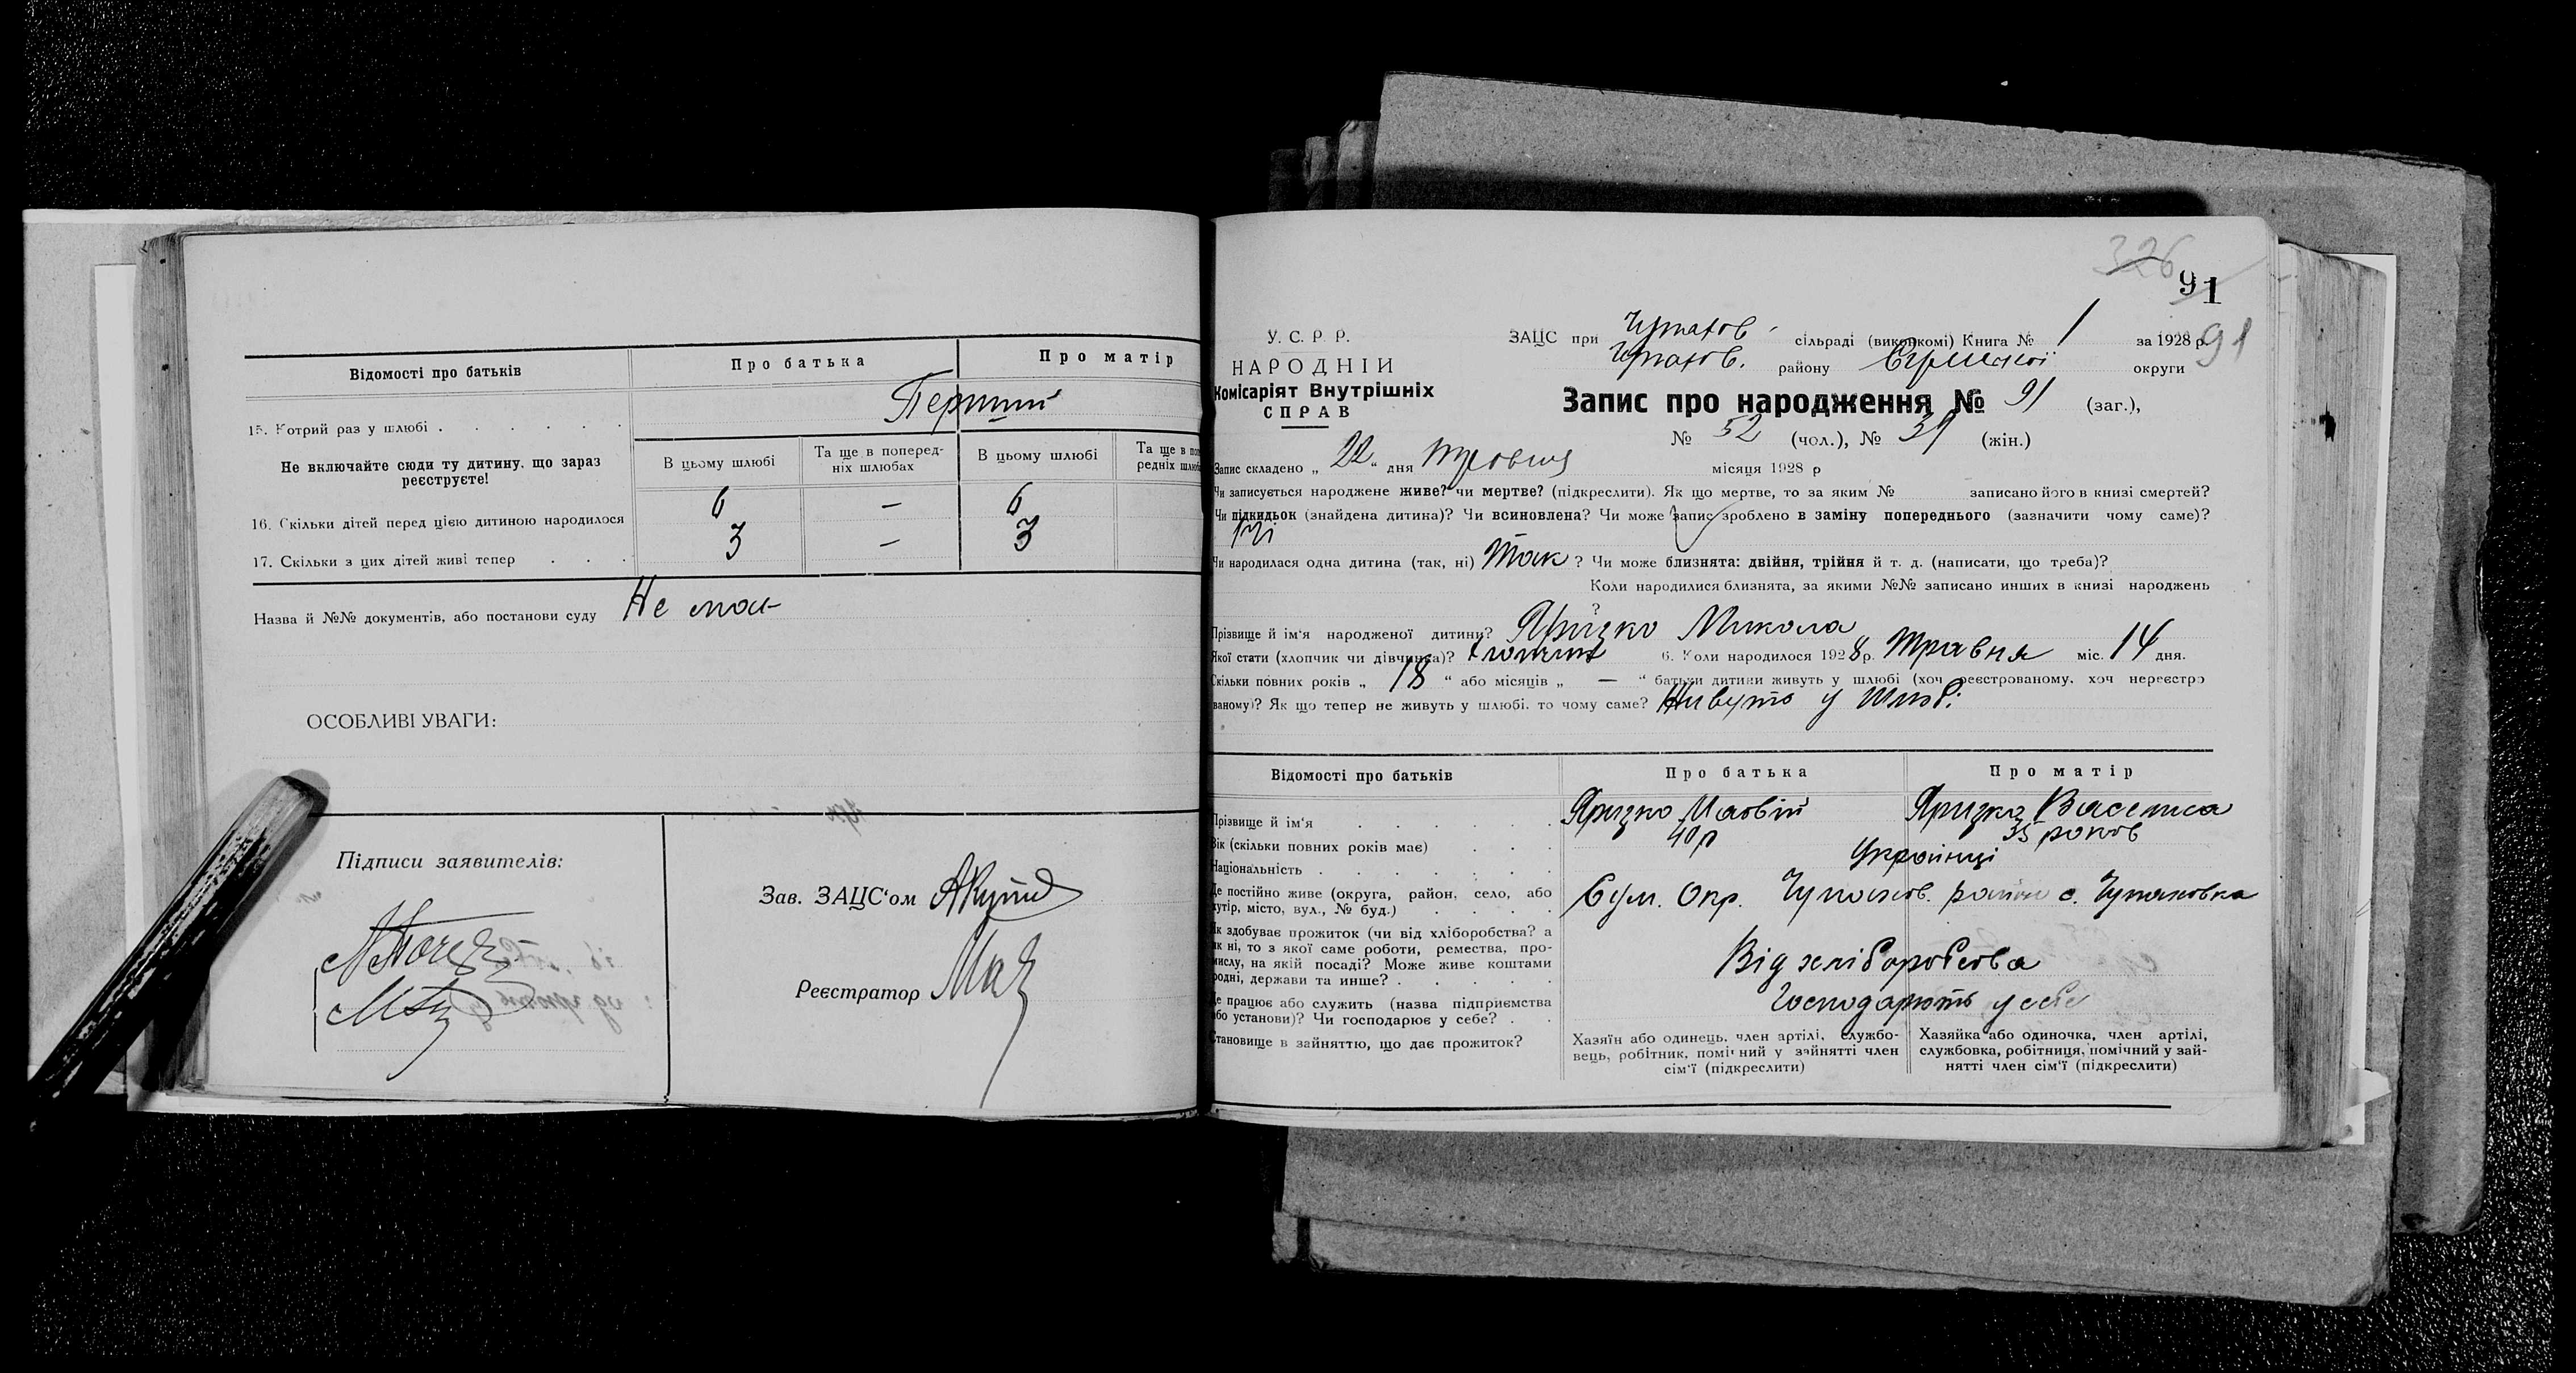 Відомості про батьків
Про батька
Про матір
15. Котрий раз у шлюбі
Перший
Не включайте сюди ту дитину, що зараз
реєструєте!
В цьому шлюбі
Та ще в поперед-
ніх шлюбах
В цьому шлюбі
Та ще в по
редніх шлюб
16. Скільки дітей перед цією дитиною народилося 6 — 6
17. Скільки з цих дітей живі тепер 3 — 3
Назва й №№ документів, або постанови суду Не має
ОСОБЛИВІ УВАГИ:
Підписи заявителів:
Зав. ЗАЦС'ом
Реєстратор
326
91
91
У. С. Р. Р.
НАРОДНІЙ
Комісаріят Внутрішніх
СПРАВ
ЗАЦС при Чупахов. сільраді (виконкомі) Книга № 1 за 1928 р.
Чупахов. району Сумської округи
Запис про народження № 91 (заг.),
№ 52 (чол.), № 39 (жін.)
Запис складено „ 22 “ дня травня місяця 1928 р
Чи записується народжене живе? чи мертве? (підкреслити). Як що мертве, то за яким № записано його в книзі смертей?
Чи підкидьок (знайдена дитина)? Чи всиновлена? Чи може запис зроблено в заміну попереднього (зазначити чому саме)?
Ні
Чи народилася одна дитина (так, ні) Так ? Чи може близнята: двійня, трійня й т. д. (написати, що треба)?
Коли народилися близнята, за якими №№ записано инших в книзі народжень
?
Прізвище й ім'я народженої дитини? Яризко Микола
Якої стати (хлопчик чи дівчинка)? Хлопчик 6. Коли народилося 1928 р. Травня міс. 14 дня.
Скільки повних років „ 18 “ або місяців „ — “ батьки дитини живуть у шлюбі (хоч реєстрованому, хоч нереєстро
ваному)? Як що тепер не живуть у шлюбі, то чому саме? Живуть у шлюбі
Відомості про батьків
Про батька
Про матір
Прізвище й ім'я Яризко Мавій Яризко Василиса
Вік (скільки повних років має) 40 р 35 років
Національність Українці
Де постійно живе (округа, район, село, або
хутір, місто, вул., № буд.)
Сум. Окр. Чупахов. район с. Чупаховка
Як здобуває прожиток (чи від хліборобства? а
як ні, то з якої саме роботи, ремества, про-
мислу, на якій посаді? Може живе коштами
родні, держави та инше?
Від хліборобства
Де працює або служить (назва підприємства
або установи)? Чи господарює у себе?
Господарюють у себе
Становище в зайняттю, що дає прожиток?
Хазяїн або одинець, член артілі, службо-
вець, робітник, помічний у зайнятті член
сім'ї (підкреслити)
Хазяйка або одиночка, член артілі,
службовка, робітниця, помічний у зай-
нятті член сім'ї (підкреслити)